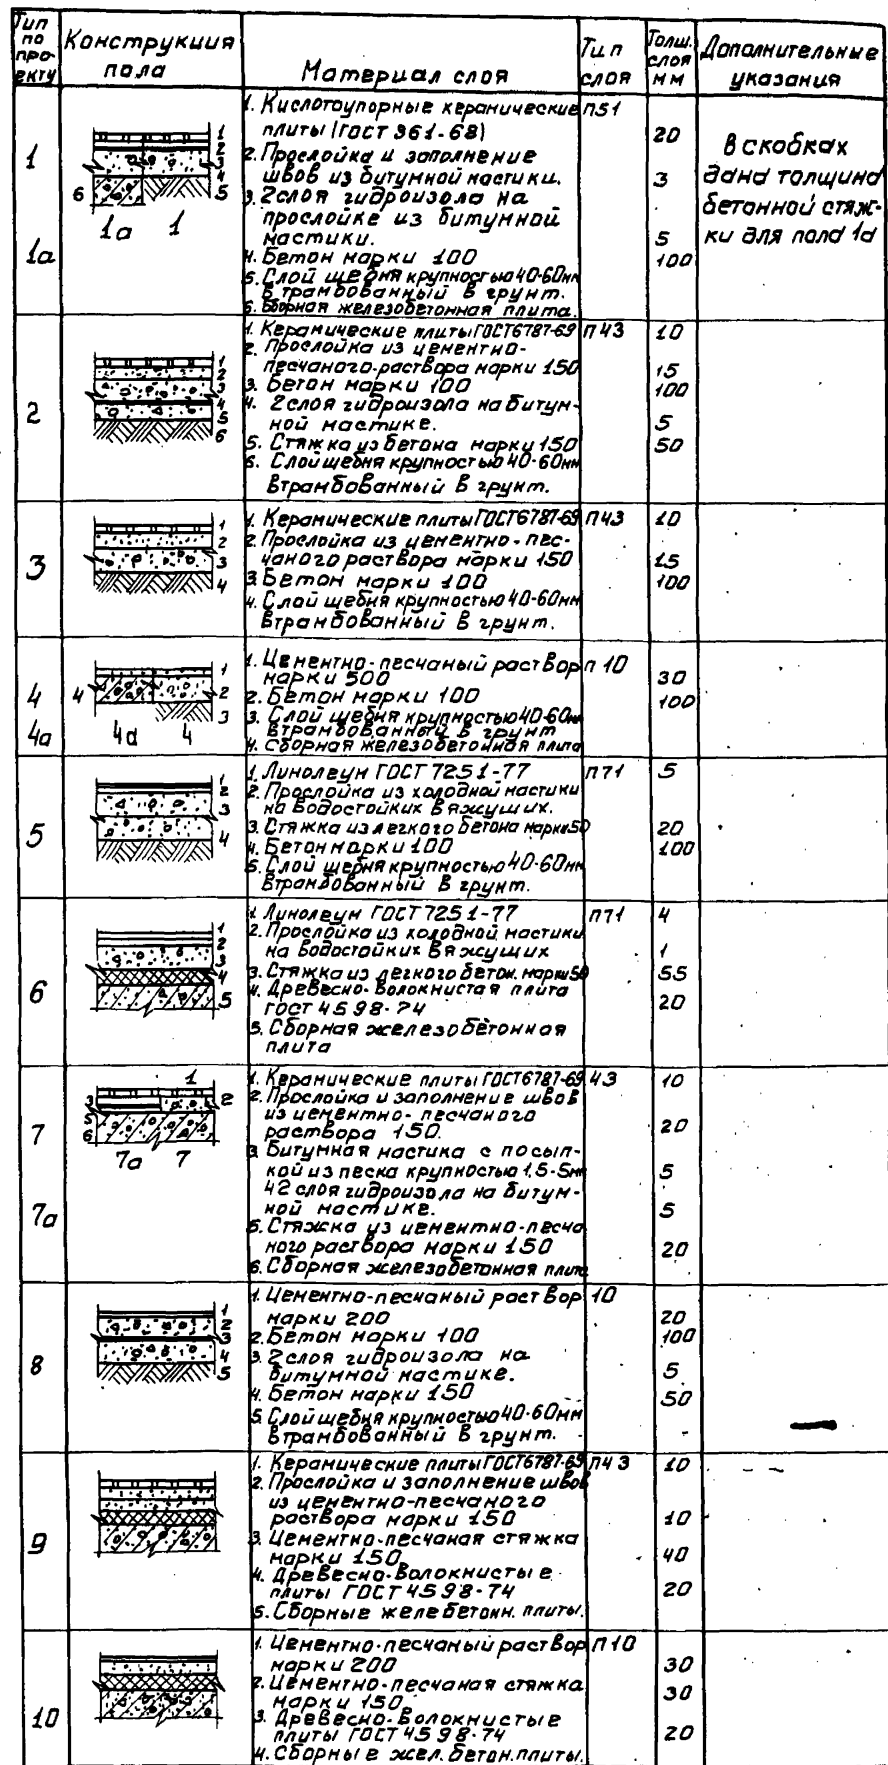 Тип по проекту
Конструкция пола
Материал слоя
Тип слоя
Толщ. слоя мм
Дополнительные указания
1
1а
1
2
3
4
5
6
1а 1
1. Кислотоупорные керамические П51
плиты (ГОСТ 961-68) 20
2. Прослойка и заполнение
швов из битумной мастики. 3
3. 2 слоя гидроизола на
прослойке из битумной
мастики. 5
4. Бетон марки 100 100
5. Слой щебня крупностью 40-60мм
втрамбованный в грунт.
6. Сборная железобетонная плита.
В скобках
дана толщина
бетонной стяж-
ки для пола 1а
2
1
2
3
4
5
6
1. Керамические плиты ГОСТ6787-69 П43 10
2. Прослойка из цементно-
песчаного раствора марки 150 15
3. Бетон марки 100 100
4. 2 слоя гидроизола на битум-
ной мастике. 5
5. Стяжка из бетона марки 150 50
6. Слой щебня крупностью 40-60мм
втрамбованный в грунт.
3
1
2
3
4
1. Керамические плиты ГОСТ6787-69 П43 10
2. Прослойка из цементно-пес-
чаного раствора марки 150 15
3. Бетон марки 100 100
4. Слой щебня крупностью 40-60мм
втрамбованный в грунт.
4
4а
4
1
2
3
4а 4
1. Цементно-песчаный раствор П10
марки 500 30
2. Бетон марки 100 100
3. Слой щебня крупностью 40-60мм
втрамбованный в грунт
4. Сборная железобетонная плита
5
1
2
3
4
1. Линолеум ГОСТ 7251-77 П71 5
2. Прослойка из холодной мастики
на водостойких вяжущих.
3. Стяжка из легкого бетона марки 50 20
4. Бетон марки 100 100
5. Слой щебня крупностью 40-60мм
втрамбованный в грунт.
6
1
2
3
4
5
1. Линолеум ГОСТ 7251-77 П71 4
2. Прослойка из холодной мастики
на водостойких вяжущих 1
3. Стяжка из легкого бетон. марки 50 55
4. Древесно-волокнистая плита 20
ГОСТ 4598-74
5. Сборная железобетонная
плита
7
7а
1
3
2
5
6
7а 7
1. Керамические плиты ГОСТ6787-69 43 10
2. Прослойка и заполнение швов
из цементно-песчаного 20
раствора 150.
3. Битумная мастика с посып-
кой из песка крупностью 1.5-5мм 5
4 2 слоя гидроизола на битум-
ной мастике. 5
5. Стяжка из цементно-песча
ного раствора марки 150 20
6. Сборная железобетонная плита
8
1
2
3
4
5
1. Цементно-песчаный раствор 10
марки 200 20
2. Бетон марки 100 100
3. 2 слоя гидроизола на
битумной мастике. 5
4. Бетон марки 150 50
5. Слой щебня крупностью 40-60мм
втрамбованный в грунт.
9
1. Керамические плиты ГОСТ6787-69 П43 10
2. Прослойка и заполнение швов
из цементно-песчаного
раствора марки 150 10
3. Цементно-песчаная стяжка
марки 150 40
4. Древесно-волокнистые
плиты ГОСТ 4598-74 20
5. Сборные желе бетонн. плиты.
10
1. Цементно-песчаный раствор П10
марки 200 30
2. Цементно-песчаная стяжка 30
марки 150
3. Древесно-волокнистые
плиты ГОСТ 4598-74 20
4. Сборные жел. бетон. плиты.